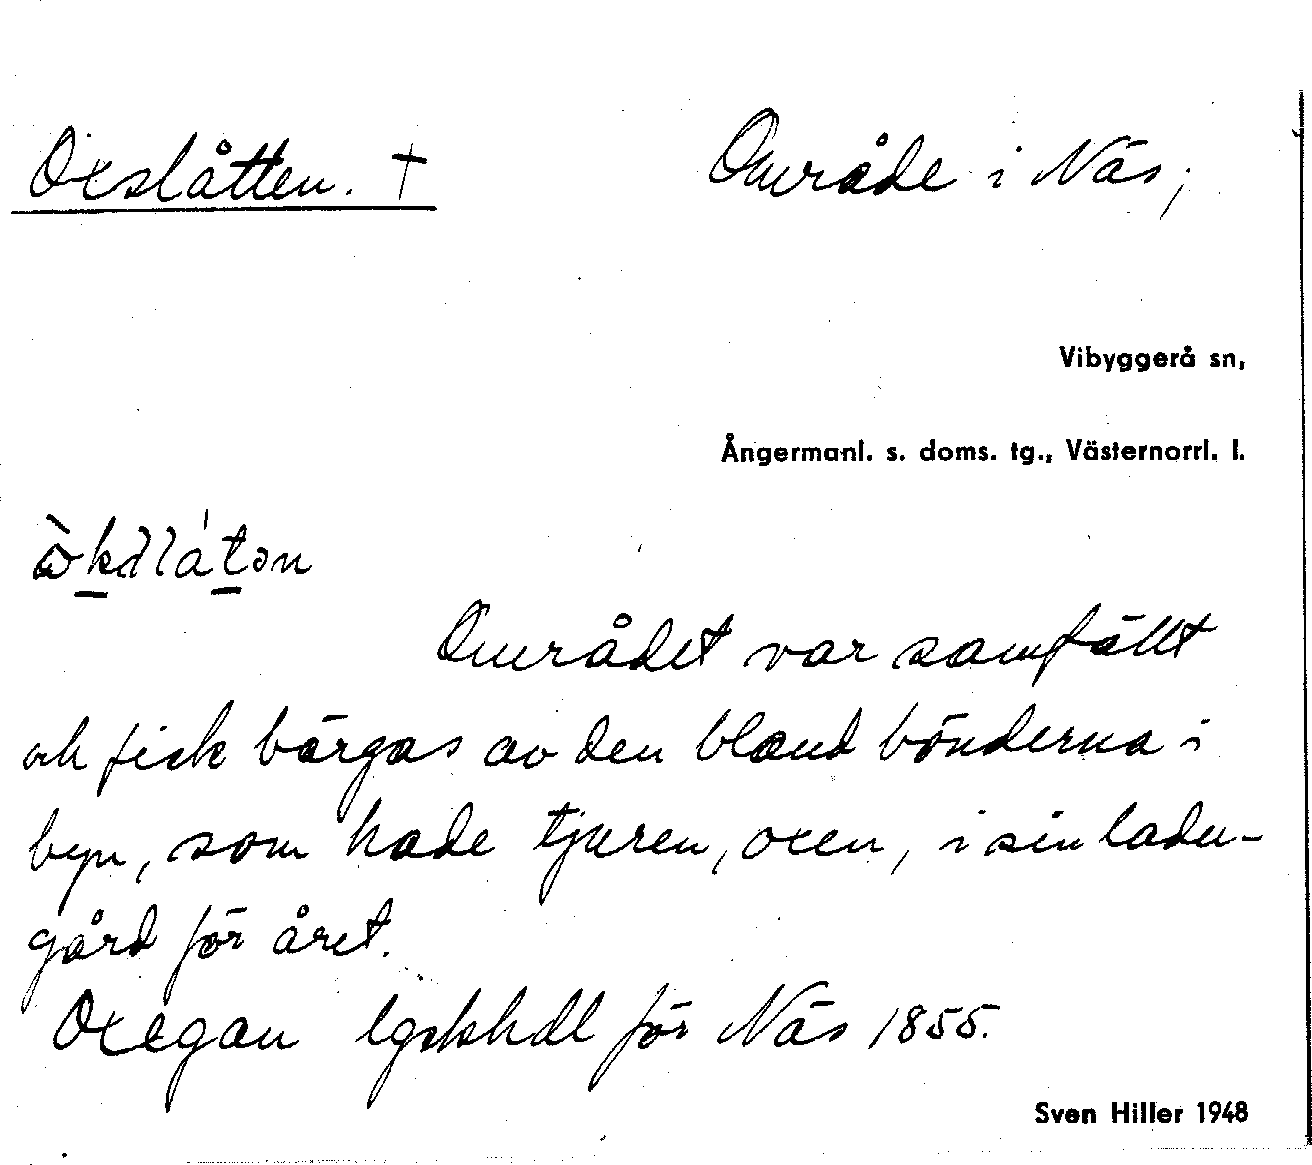 Oxslåtten. † Område i Näs,
Vibyggerå sn,
Ångermanl. s. doms. tg., Västernorrl. l.
Området var samfällt
och fick bärgas av den bland bönderna i
byn, som hade tjuren, oxen, i sin ladu-
gård för året.
Oxegan lgskhdl för Näs 1855.
Sven Hiller 1948